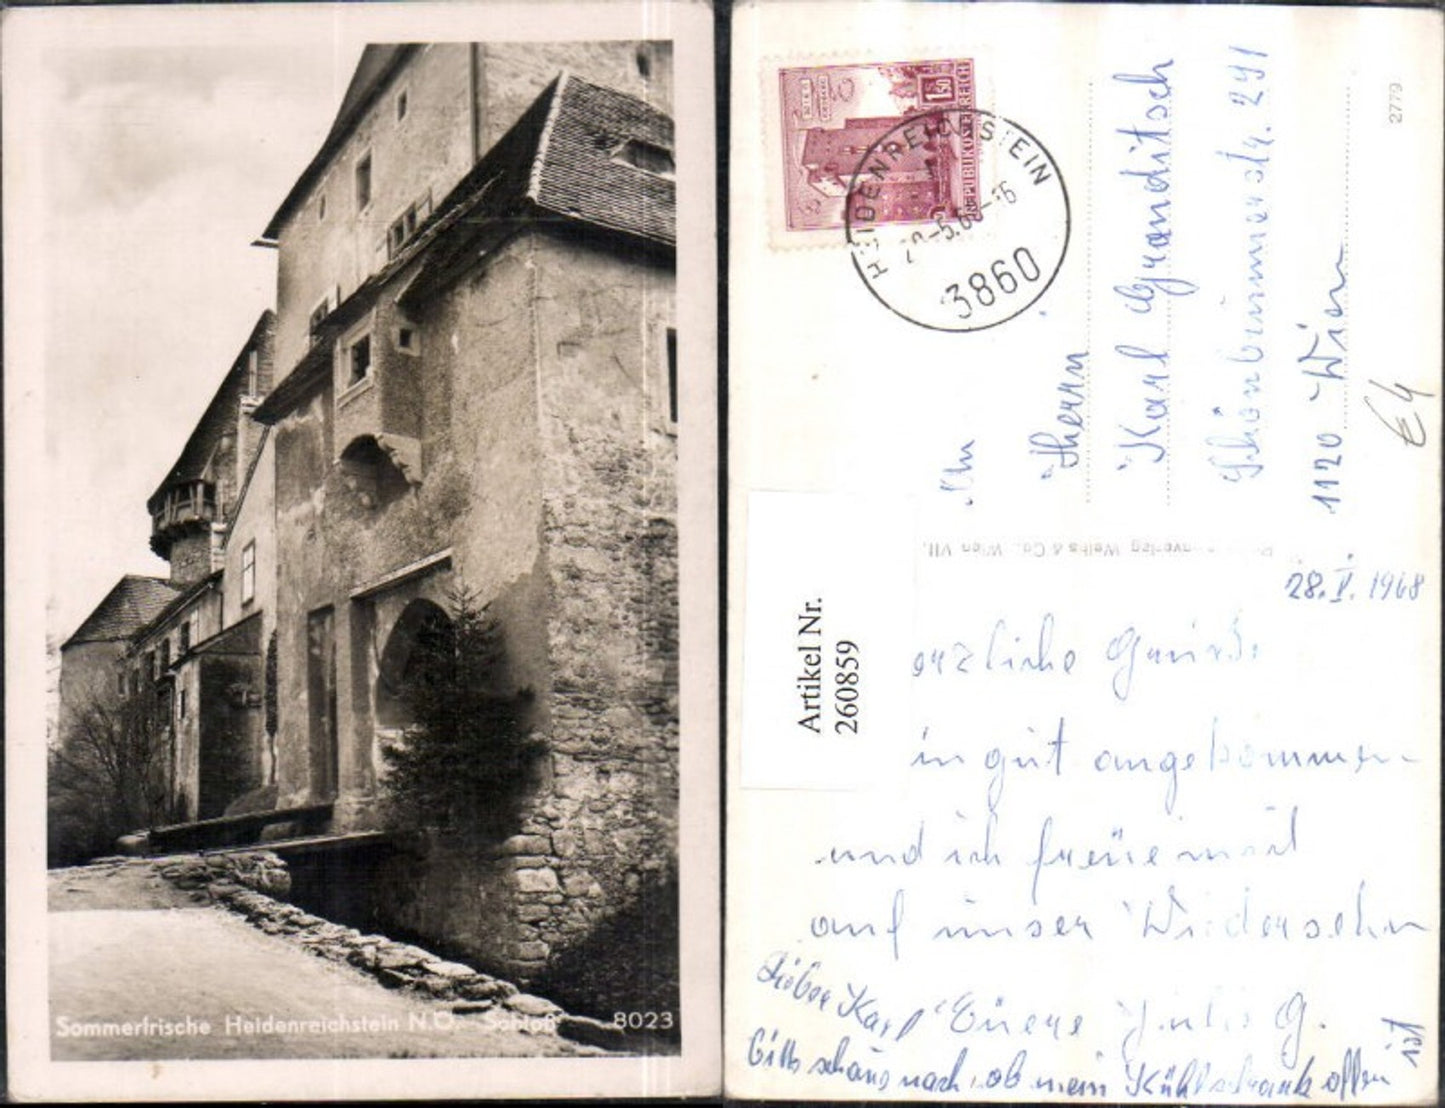 Sommerfrische Heidenreichstein N.Ö. Schloß 8023
1.50
REPUBLIK ÖSTERREICH
HEIDENREICHSTEIN
-5.68-16
3860
2779
An
Herrn
Karl Granditsch
Schönbrunnerstr. 291
1120 Wien
€4
verlag Weihs & Co., Wien VII.
Artikel Nr.
260859
28.V.1968
erzliche Grüsse
in gut angekommen
und ich freue mich
auf unser Wiedersehn
Euere Julis G.
Lieber Karl
bitte schaue nach, ob mein Kühlschrank offen ist